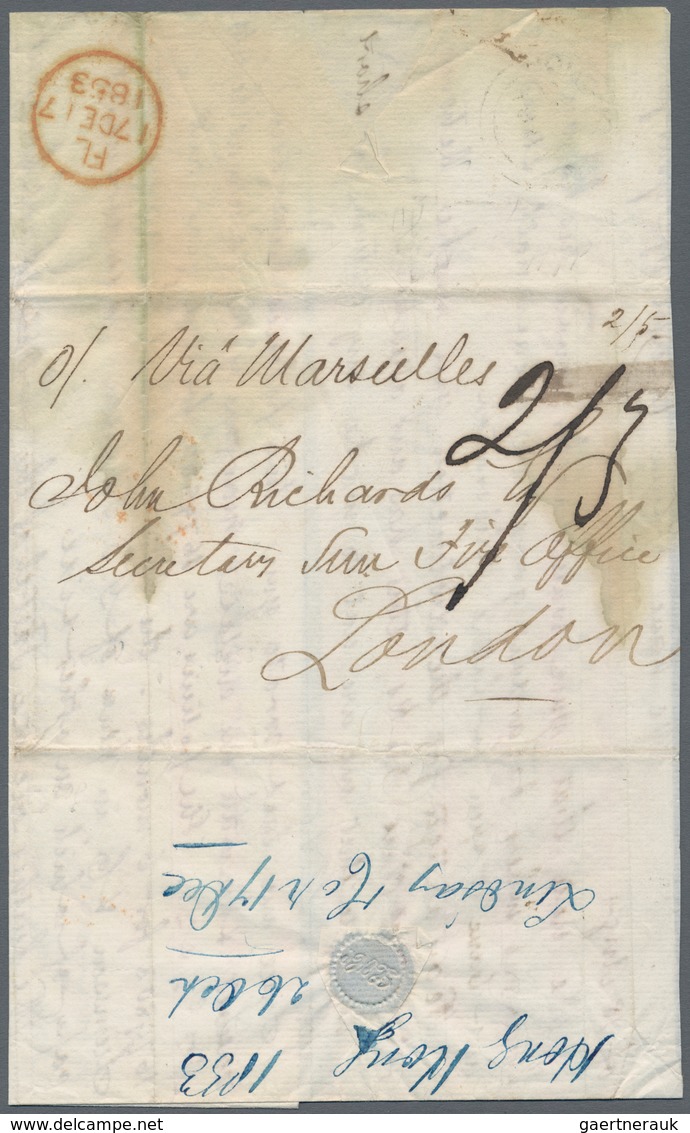 FL
17DE17
1853
2/5
o/. Viâ Marseilles
2/5
John Richards
Secretary Sun Fire Office
London
Lindsay
17 Dec
26 Oct
Hong Kong
1853
gaertnerauk